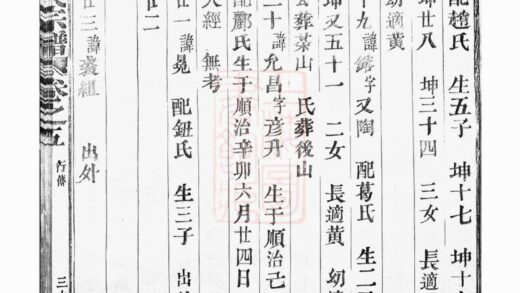 配趙氏 生五子 坤十七 坤十
坤廿八 坤三十四 三女 長適
幼適黃
十九諱 字又陶 配葛氏 生二
坤又五十一 二女 長適黃 幼
公葬菜山 氏葬後山
二十諱允昌字彥升 生于順治己
配酈氏生于順治辛卯六月廿四日
人經 無考
廿一諱晃 配鈕氏 生三子 出
廿二
廿三諱 組 出外
宗譜 卷之五 行傳 三十